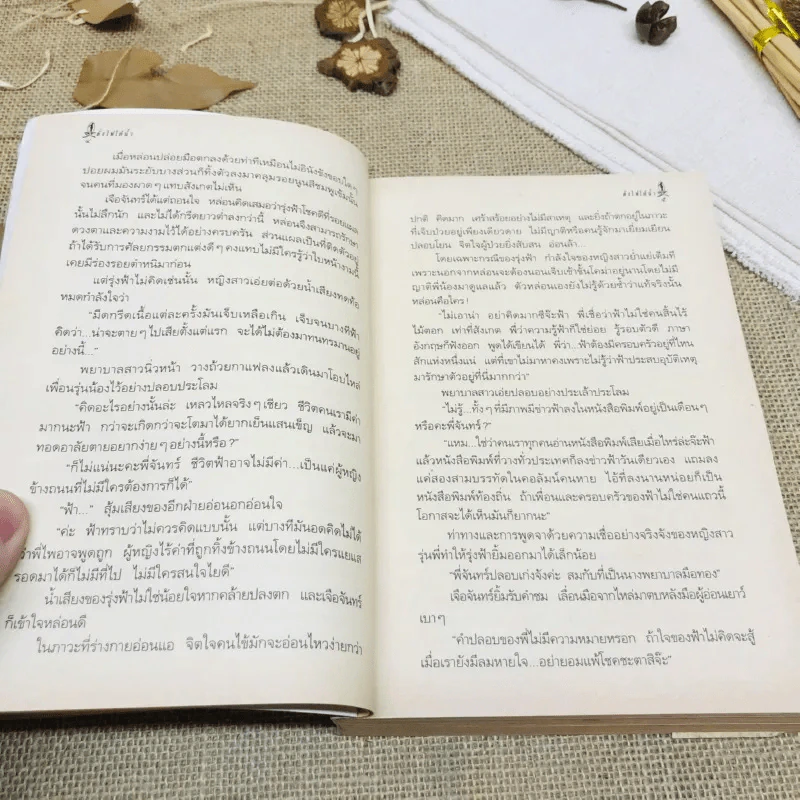 เมื่อหล่อนปล่อยมือตกลงด้วยท่าทีเหมือนไม่อินังขังขอบใดๆ
ปอยผมมันระยับบางส่วนก็ทิ้งตัวลงมาคลุมรอยนูนสีชมพูเข้มนั้น
จนคนที่มองผาดๆ แทบสังเกตไม่เห็น
เจือจันทร์ได้แต่ถอนใจ หล่อนคิดเสมอว่ารุ่งฟ้าโชคดีที่รอยแผล
นั้นไม่ลึกนัก และไม่ได้กรีดยาวต่ำลงกว่านี้ หล่อนจึงสามารถรักษา
ดวงตาและความงามไว้ได้อย่างครบครัน ส่วนแผลเป็นที่ติดตัวอยู่
ถ้าได้รับการศัลยกรรมตกแต่งดีๆ คงแทบไม่มีใครรู้ว่าใบหน้างามนี้
เคยมีร่องรอยตำหนิมาก่อน
แต่รุ่งฟ้าไม่คิดเช่นนั้น หญิงสาวเอ่ยต่อด้วยน้ำเสียงทดท้อ
หมดกำลังใจว่า
“มีดกรีดเนื้อแต่ละครั้งมันเจ็บเหลือเกิน เจ็บจนบางทีฟ้า
คิดว่า...น่าจะตายๆ ไปเสียตั้งแต่แรก จะได้ไม่ต้องมาทนทรมานอยู่
อย่างนี้...”
พยาบาลสาวนิ่วหน้า วางถ้วยกาแฟลงแล้วเดินมาโอบไหล่
เพื่อนรุ่นน้องไว้อย่างปลอบประโลม
“คิดอะไรอย่างนั้นล่ะ เหลวไหลจริงๆ เชียว ชีวิตคนเรามีค่า
มากนะฟ้า กว่าจะเกิดกว่าจะโตมาได้ยากเย็นแสนเข็ญ แล้วจะมา
ทอดอาลัยตายอยากง่ายๆ อย่างนี้หรือ?”
“ก็ไม่แน่นะคะพี่จันทร์ ชีวิตฟ้าอาจไม่มีค่า...เป็นแค่ผู้หญิง
ข้างถนนที่ไม่มีใครต้องการก็ได้”
“ฟ้า...” สุ้มเสียงของอีกฝ่ายอ่อนอกอ่อนใจ
“ค่ะ ฟ้าทราบว่าไม่ควรคิดแบบนั้น แต่บางทีมันอดคิดไม่ได้
ว่าพี่ไพอาจพูดถูก ผู้หญิงไร้ค่าที่ถูกทิ้งข้างถนนโดยไม่มีใครแยแส
รอดมาได้ก็ไม่มีที่ไป ไม่มีใครสนใจไยดี”
น้ำเสียงของรุ่งฟ้าไม่ใช่น้อยใจหากคล้ายปลงตก และเจือจันทร์
ก็เข้าใจหล่อนดี
ในภาวะที่ร่างกายอ่อนแอ จิตใจคนไข้มักจะอ่อนไหวง่ายกว่า
ปกติ คิดมาก เศร้าหรือยอย่างไม่มีสาเหตุ และยิ่งถ้าตกอยู่ในภาวะ
ที่เจ็บป่วยอยู่เพียงเดียวดาย ไม่มีญาติหรือคนรู้จักมาเยี่ยมเยียน
ปลอบโยน จิตใจผู้ป่วยยิ่งสับสน อ่อนล้า...
โดยเฉพาะกรณีของรุ่งฟ้า กำลังใจของหญิงสาวย่ำแย่เต็มที
เพราะนอกจากหล่อนจะต้องนอนเจ็บเข้าขั้นโคม่าอยู่นานโดยไม่มี
ญาติพี่น้องมาดูแลแล้ว ตัวหล่อนเองยังไม่รู้ด้วยซ้ำว่าแท้จริงนั้น
หล่อนคือใคร!
“ไม่เอาน่า อย่าคิดมากซีจ๊ะฟ้า พี่เชื่อว่าฟ้าไม่ใช่คนสิ้นไร้
ไม้ตอก เท่าที่สังเกต พี่ว่าความรู้ฟ้าก็ใช่ย่อย รู้รอบตัวดี ภาษา
อังกฤษก็ฟังออก พูดได้เขียนได้ พี่ว่า...ฟ้าต้องมีครอบครัวอยู่ที่ไหน
สักแห่งหนึ่งแน่ แต่ที่เขาไม่มาหาคงเพราะไม่รู้ว่าฟ้าประสบอุบัติเหตุ
มารักษาตัวอยู่ที่นี่มากกว่า”
พยาบาลสาวเอ่ยปลอบอย่างประเล้าประโลม
“ไม่รู้...ทั้งๆ ที่มีภาพมีข่าวฟ้าลงในหนังสือพิมพ์อยู่เป็นเดือนๆ
หรือคะพี่จันทร์?”
“แหม...ใช่ว่าคนเราทุกคนอ่านหนังสือพิมพ์เสียเมื่อไหร่ล่ะจ๊ะฟ้า
แล้วหนังสือพิมพ์ที่วางทั่วประเทศก็ลงข่าวฟ้าวันเดียวเอง แถมลง
แค่สองสามบรรทัดในคอลัมน์คนหาย ไอ้ที่ลงนานหน่อยก็เป็น
หนังสือพิมพ์ท้องถิ่น ถ้าเพื่อนและครอบครัวของฟ้าไม่ใช่คนแถวนี้
โอกาสจะได้เห็นมันก็ยากนะ”
ท่าทางและการพูดจาด้วยความเชื่ออย่างจริงจังของหญิงสาว
รุ่นพี่ทำให้รุ่งฟ้ายิ้มออกมาได้เล็กน้อย
“พี่จันทร์ปลอบเก่งจังค่ะ สมกับที่เป็นนางพยาบาลมือทอง”
เจือจันทร์ยิ้มรับคำชม เลื่อนมือจากไหล่มาตบหลังมือผู้อ่อนเยาว์
เบาๆ
“คำปลอบของพี่ไม่มีความหมายหรอก ถ้าใจของฟ้าไม่คิดจะสู้
เมื่อเรายังมีลมหายใจ...อย่ายอมแพ้โชคชะตาสิจ๊ะ”